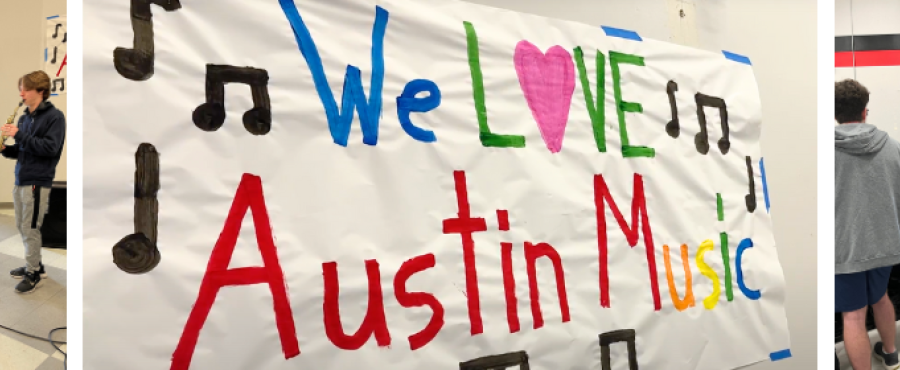 We LOVE
Austin Music